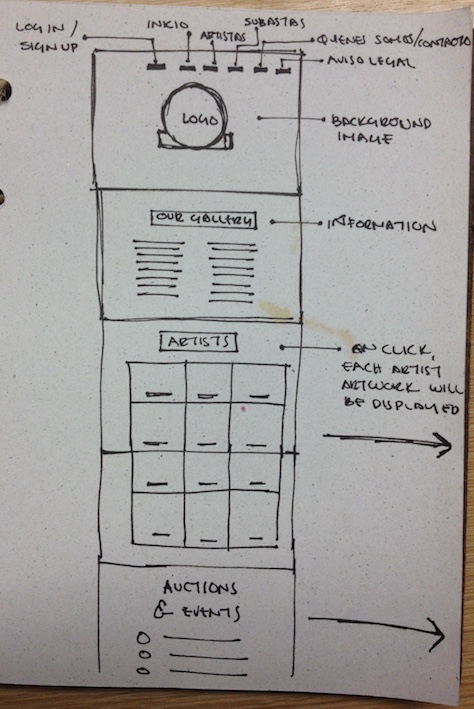 LOG IN /
SIGN UP
INICIO
ARTISTAS
SUBASTAS
QUIENES SOMOS/CONTACTO
AVISO LEGAL
LOGO
BACKGROUND
IMAGE
OUR GALLERY
INFORMATION
ARTISTS
ON CLICK,
EACH ARTIST
ARTWORK WILL
BE DISPLAYED
AUCTIONS
& EVENTS